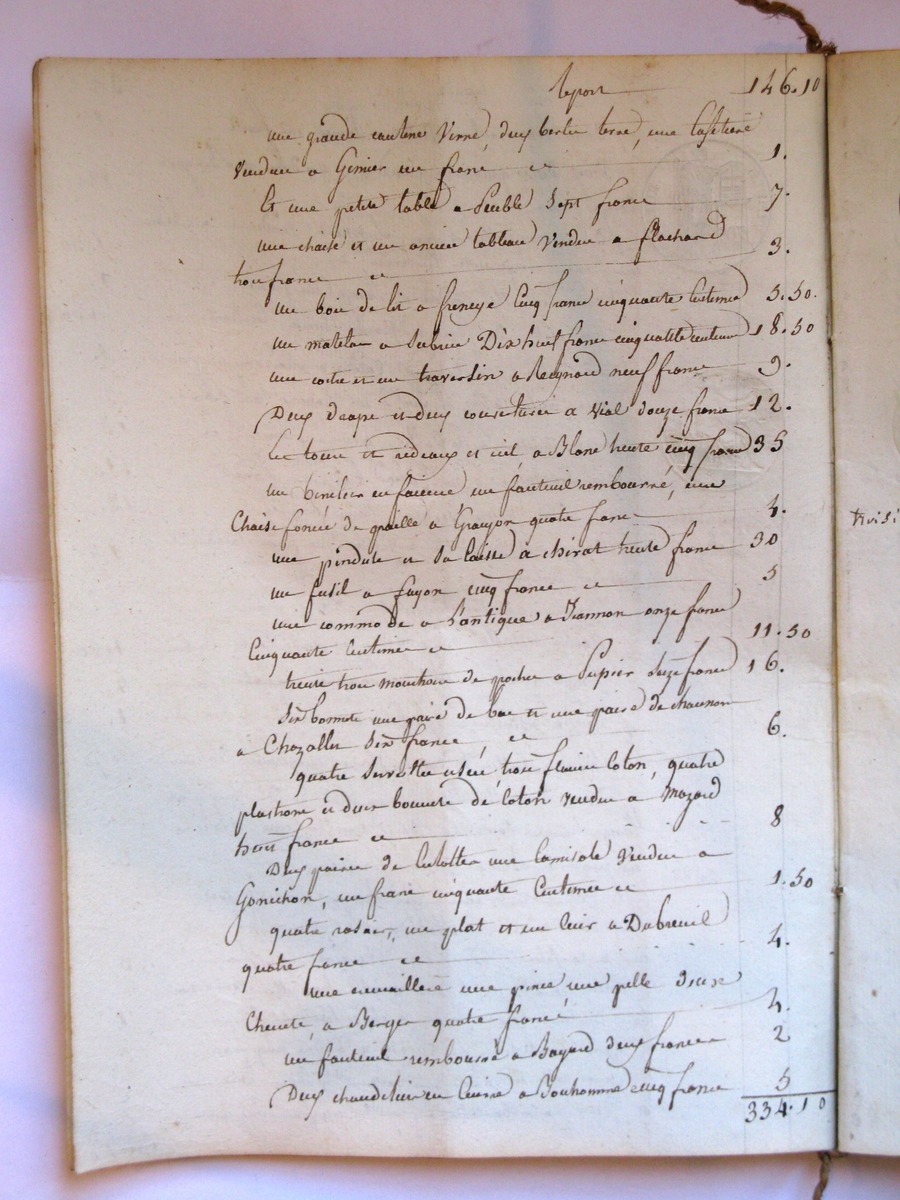 Report 146.10
une grande verre, deux terre, une Cafetiere
Vendue a Genier un franc 1.
Et une petite table a Peuble Sept franc 7.
une chaise et un ancien tableau Vendu a flachard
trois franc 3.
un bois de lit a freneye Cinq franc cinquante Centime 5.50.
un matelas a Dix huit franc cinquante centime 18.50
une et un traversin a Reynard neuf franc 9.
Deux drape et deux couverture a Vial douze franc 12.
Les tour et rideaux et ciel a Blanc trente cinq franc 35
un benitier en faience un fauteuil rembourré, une
Chaise foncée de paille a Grayon quatre franc 4.
une pindule et sa Caisse a chirat trente franc 30
un fusil a fayon cinq franc 5
une commode a l'antique a Jeannon onze franc
Cinquante Centime 11.50
trente trois mouchoir de poche a Pupier Seize franc 16.
Six bonnet une paire de bas et une paire de chausson
a Chazallet Six franc 6.
quatre Serviette usée trois coton, quatre
plastrons et deux bonnets de Coton vendue a Mazard
huit franc 8
Deux paires de Culotte une Camisole Vendue a
Gonichon, un franc cinquante Centime 1.50
quatre rasoir, un plat et un Cuir a Dubreuil
quatre franc 4.
une une pince une pelle deux
Chenets, a Berger quatre franc 4.
un fauteuil rembourré a Bayard deux franc 2
Deux chandelier en Cuivre a Bonhomme cinq franc 5
334.10